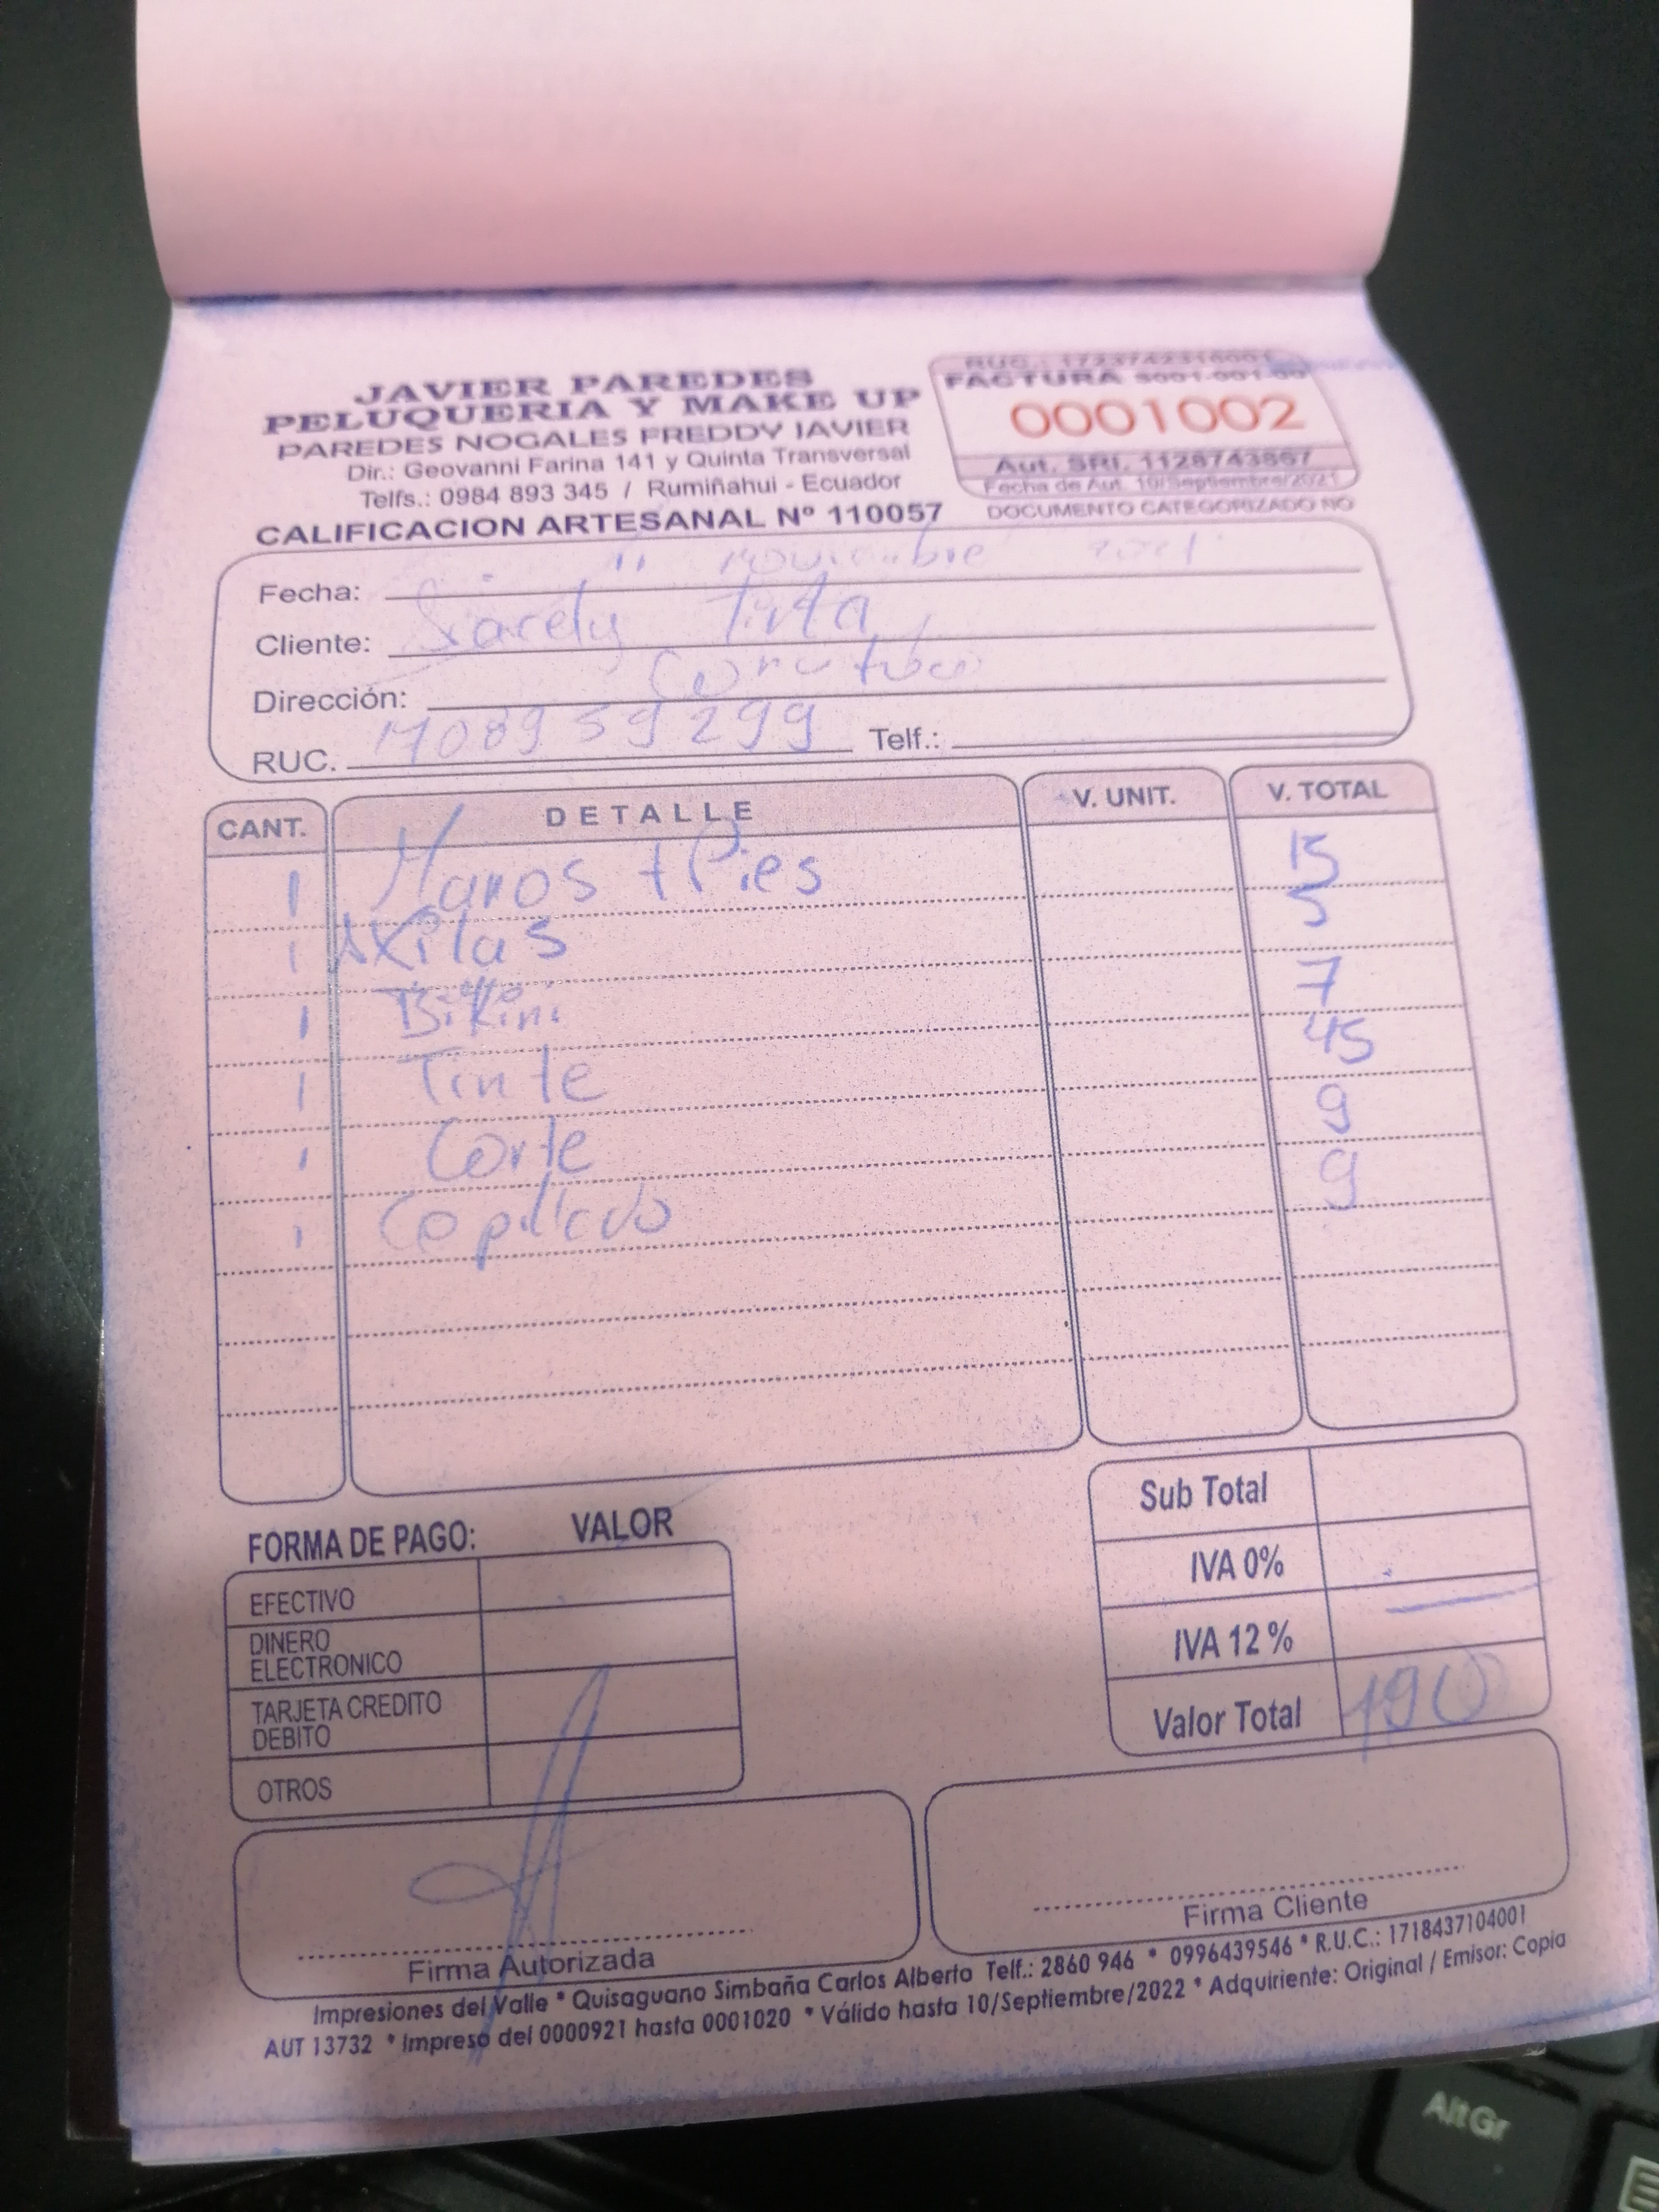 JAVIER PAREDES
PELUQUERIA Y MAKE UP
PAREDES NOGALES FREDDY JAVIER
Dir.: Geovanni Farina 141 y Quinta Transversal
Telfs.: 0984 893 345 / Rumiñahui - Ecuador
CALIFICACION ARTESANAL Nº 110057
RUC.: 1723742316001
FACTURA S001-001-00
0001002
Aut. SRI. 1128743867
Fecha de Aut. 10/Septiembre/2021
DOCUMENTO CATEGORIZADO NO
Fecha: 11 noviembre 2021
Cliente:
Dirección:
RUC. 1708959299 Telf.:
CANT. DETALLE V. UNIT. V. TOTAL
1 Manos + Pies 15
1 Axilas 5
1 Bikini 7
1 Tinte 45
1 Corte 9
1 Cepillado 9
Sub Total
IVA 0%
IVA 12 %
Valor Total 190
FORMA DE PAGO: VALOR
EFECTIVO
DINERO ELECTRONICO
TARJETA CREDITO DEBITO
OTROS
Firma Autorizada
Firma Cliente
Impresiones del Valle * Quisaguano Simbaña Carlos Alberto Telf.: 2860 946 * 0996439546 * R.U.C.: 1718437104001
AUT 13732 * Impreso del 0000921 hasta 0001020 * Válido hasta 10/Septiembre/2022 * Adquiriente: Original / Emisor: Copia
Alt Gr